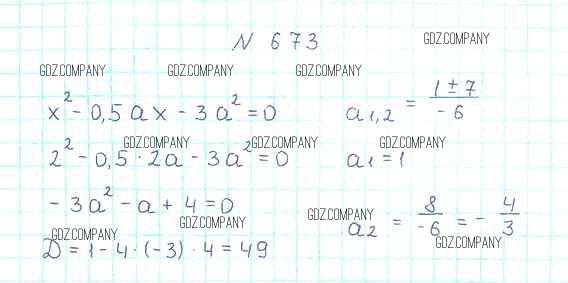 N 673
GDZ.COMPANY
GDZ.COMPANY GDZ.COMPANY GDZ.COMPANY
x² - 0,5ax - 3a² = 0
a₁,₂ = (1 ± 7)/(-6)
GDZ.COMPANY GDZ.COMPANY GDZ.COMPANY
2² - 0,5 · 2a - 3a² = 0
a₁ = 1
-3a² - a + 4 = 0
GDZ.COMPANY GDZ.COMPANY
a₂ = 8/(-6) = - 4/3
GDZ.COMPANY GDZ.COMPANY
D = 1 - 4 · (-3) · 4 = 49